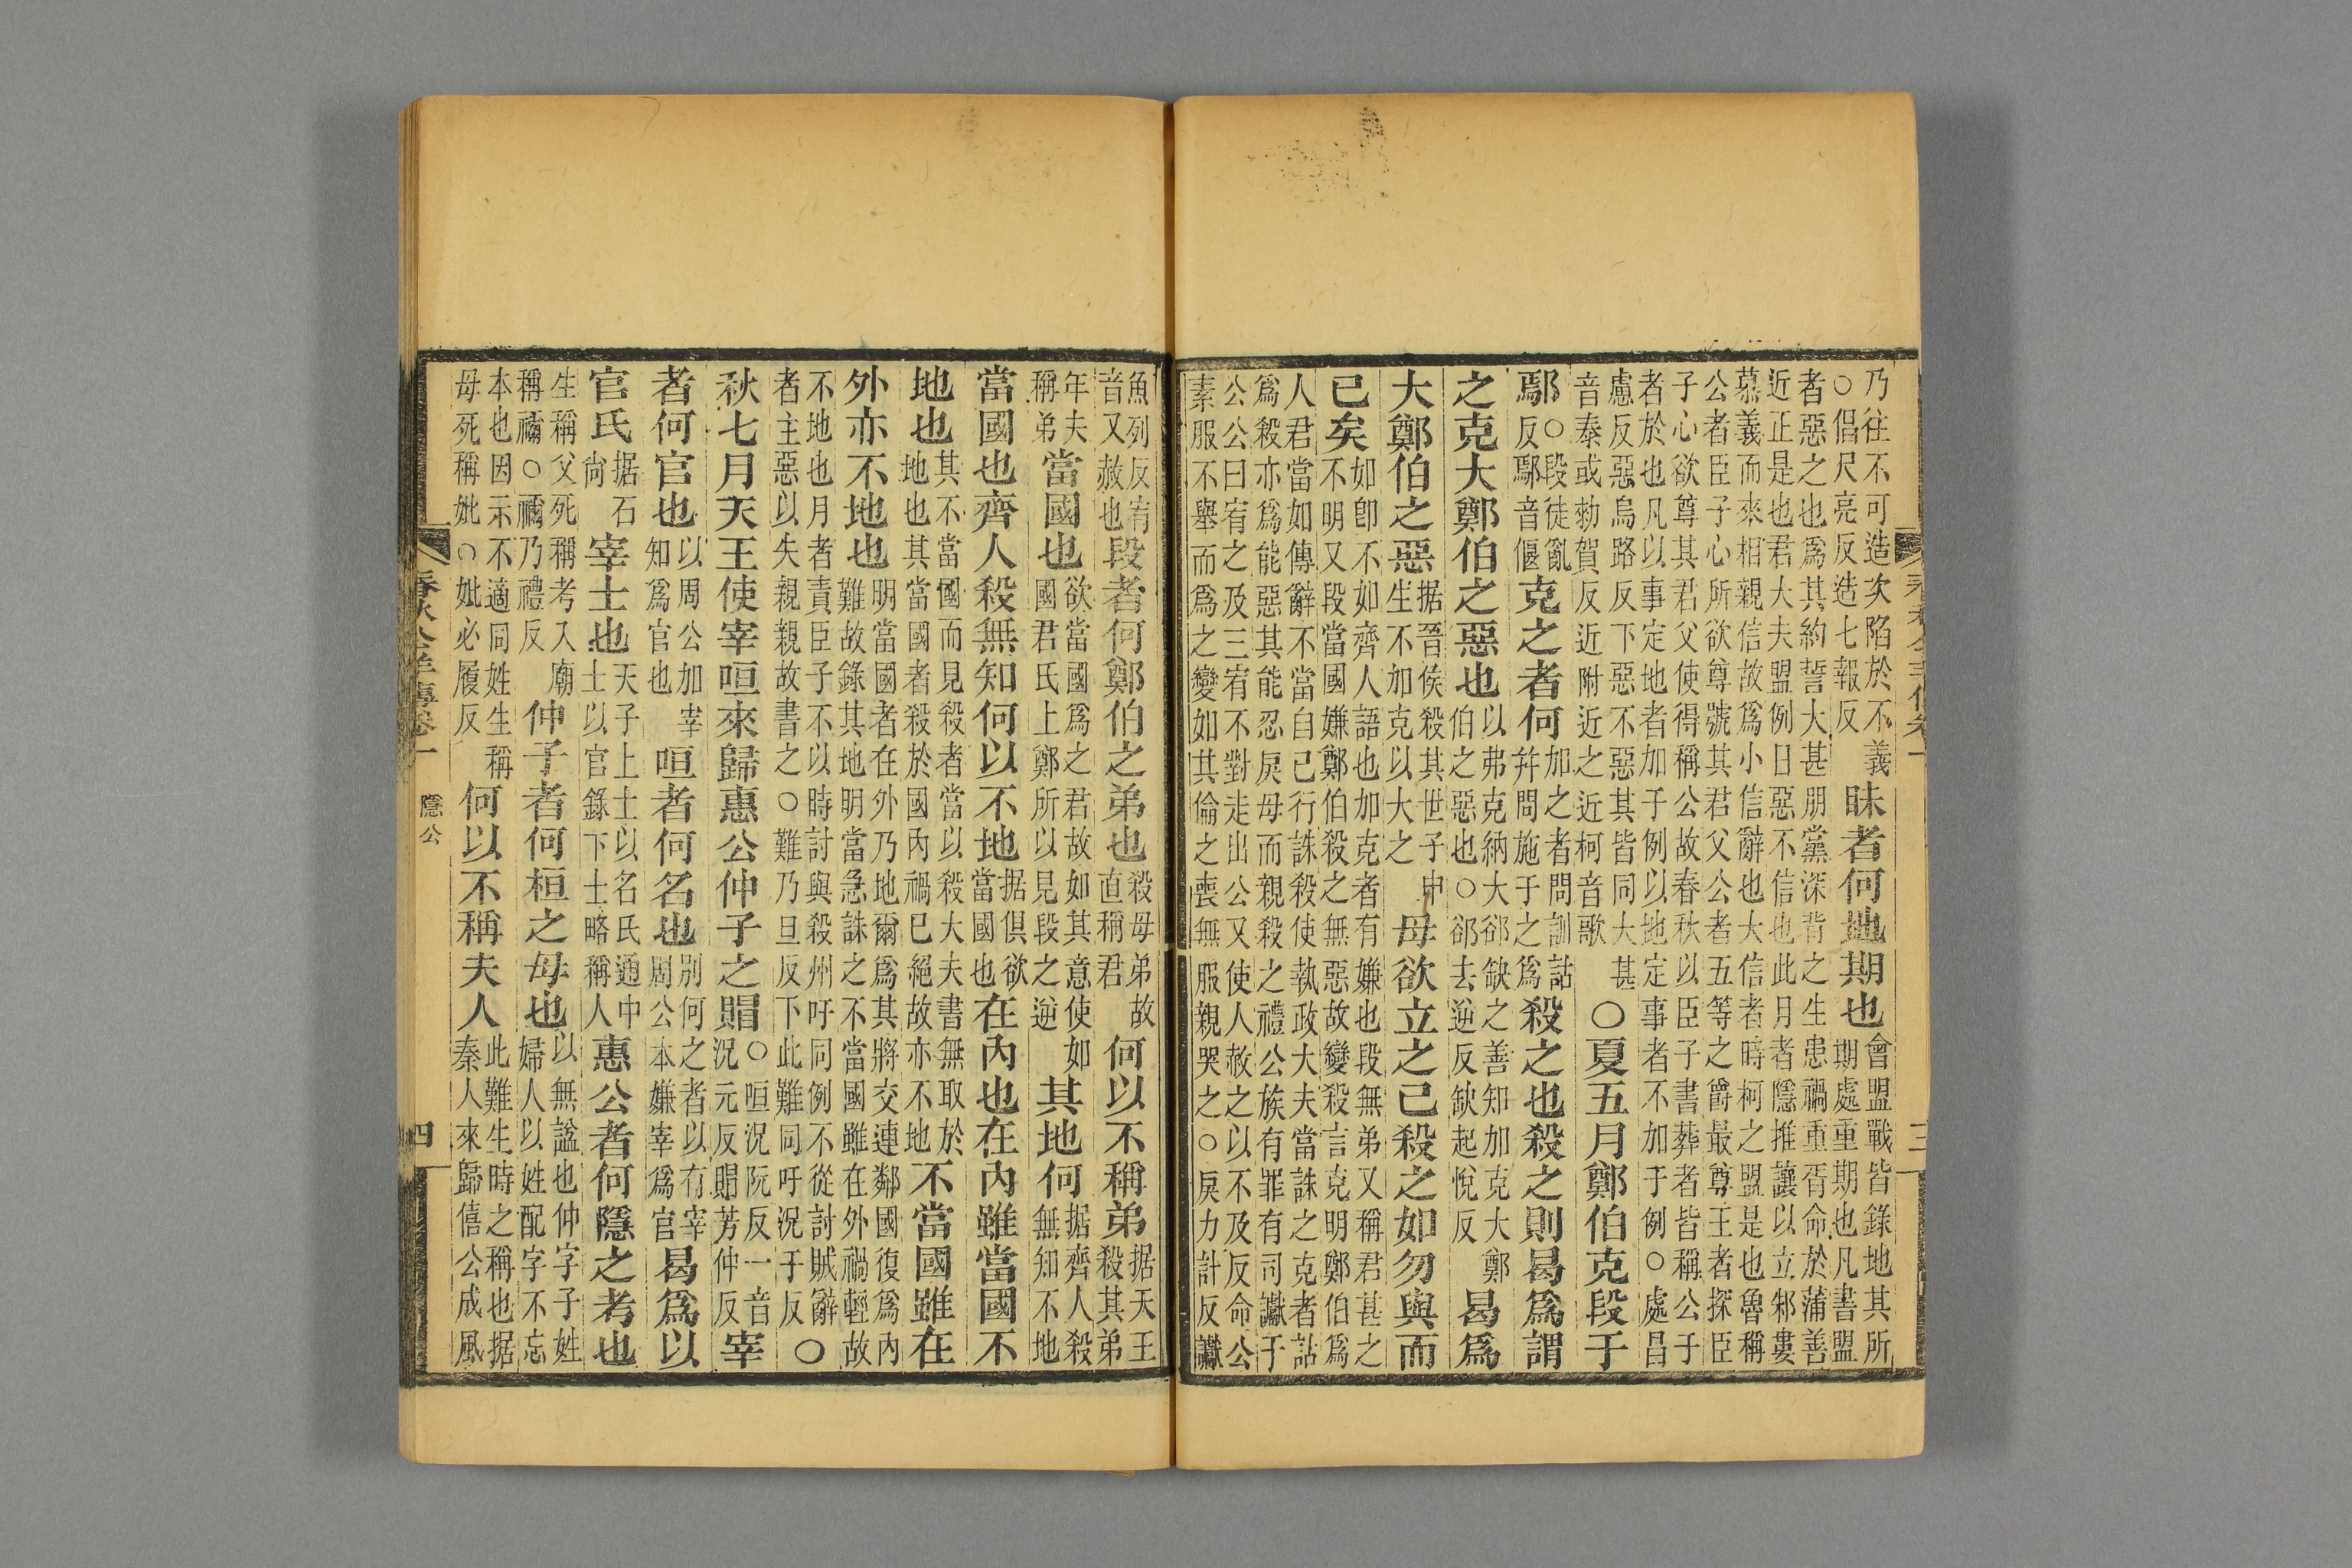 乃往不可造次陷於不義
○倡尺亮反造七報反
昧者何地期也
會盟戰皆錄地其所
期處重期也凡書盟
者惡之也爲其約誓大甚朋黨深背之生患禍重胥命於蒲善
近正是也君大夫盟例日惡不信也此月者隱推讓以立邾婁
慕義而來相親信故爲小信辭也大信者時柯之盟是也魯稱
公者臣子心所欲尊號其君父公者五等之爵最尊王者探臣
子心欲尊其君父使得稱公故春秋以臣子書葬者皆稱公子
者於也凡以事定地者加于例以地定事者不加于例○處昌
慮反惡烏路反下惡不惡其皆同大甚
音泰或勑賀反近附近之近柯音歌
○夏五月鄭伯克段于
鄢
○段徒亂
反鄢音偃
克之者何
加之者問訓詁
幷問施于之爲
殺之也殺之則曷爲謂
之克大鄭伯之惡也
以弗克納大郤缺之善知加克大鄭
伯之惡也○郤去逆反缺起悅反
曷爲
大鄭伯之惡
据晉侯殺其世子申
生不加克以大之
母欲立之已殺之如勿與而
已矣
如卽不如齊人語也加克者有嫌也段無弟又稱君甚之
不明又段當國嫌鄭伯殺之無惡故變殺言克明鄭伯爲
人君當如傳辭不當自已行誅殺使執政大夫當誅之克者詁
爲殺亦爲能惡其能忍戾母而親殺之禮公族有罪有司讞于
公公曰宥之及三宥不對走出公又使人赦之以不及反命公
素服不舉而爲之變如其倫之喪無服親哭之○戾力計反讞
魚列反宥
音又赦也
段者何鄭伯之弟也
殺母弟故
直稱君
何以不稱弟
据天王
殺其弟
年夫
稱弟
當國也
欲當國爲之君故如其意使如
國君氏上鄭所以見段之逆
其地何
据齊人殺
無知不地
當國也齊人殺無知何以不地
据俱欲
當國也
在內也在內雖當國不
地也
其不當國而見殺者當以殺大夫書無取於
地也其當國者殺於國內禍已絕故亦不地
不當國雖在
外亦不地也
明當國者在外乃地爾爲其將交連鄰國復爲內
難故錄其地明當急誅之不當國雖在外禍輕故
不地也月者責臣子不以時討與殺州吁同例不從討賊辭
者主惡以失親親故書之○難乃旦反下此難同吁況于反
○
秋七月天王使宰咺來歸惠公仲子之賵
○咺況阮反一音
況元反賵芳仲反
宰
者何官也
以周公加宰
知爲官也
咺者何名也
別何之者以有宰
周公本嫌宰爲官
曷爲以
官氏
据石
尙
宰士也
天子上士以名氏通中
士以官錄下士略稱人
惠公者何隱之考也
生稱父死稱考入廟
稱禰○禰乃禮反
仲子者何桓之母也
以無謚也仲字子姓
婦人以姓配字不忘
本也因示不適同姓生稱
母死稱妣○妣必履反
何以不稱夫人
此難生時之稱也据
秦人來歸僖公成風
春秋公羊傳卷一
隱公
四